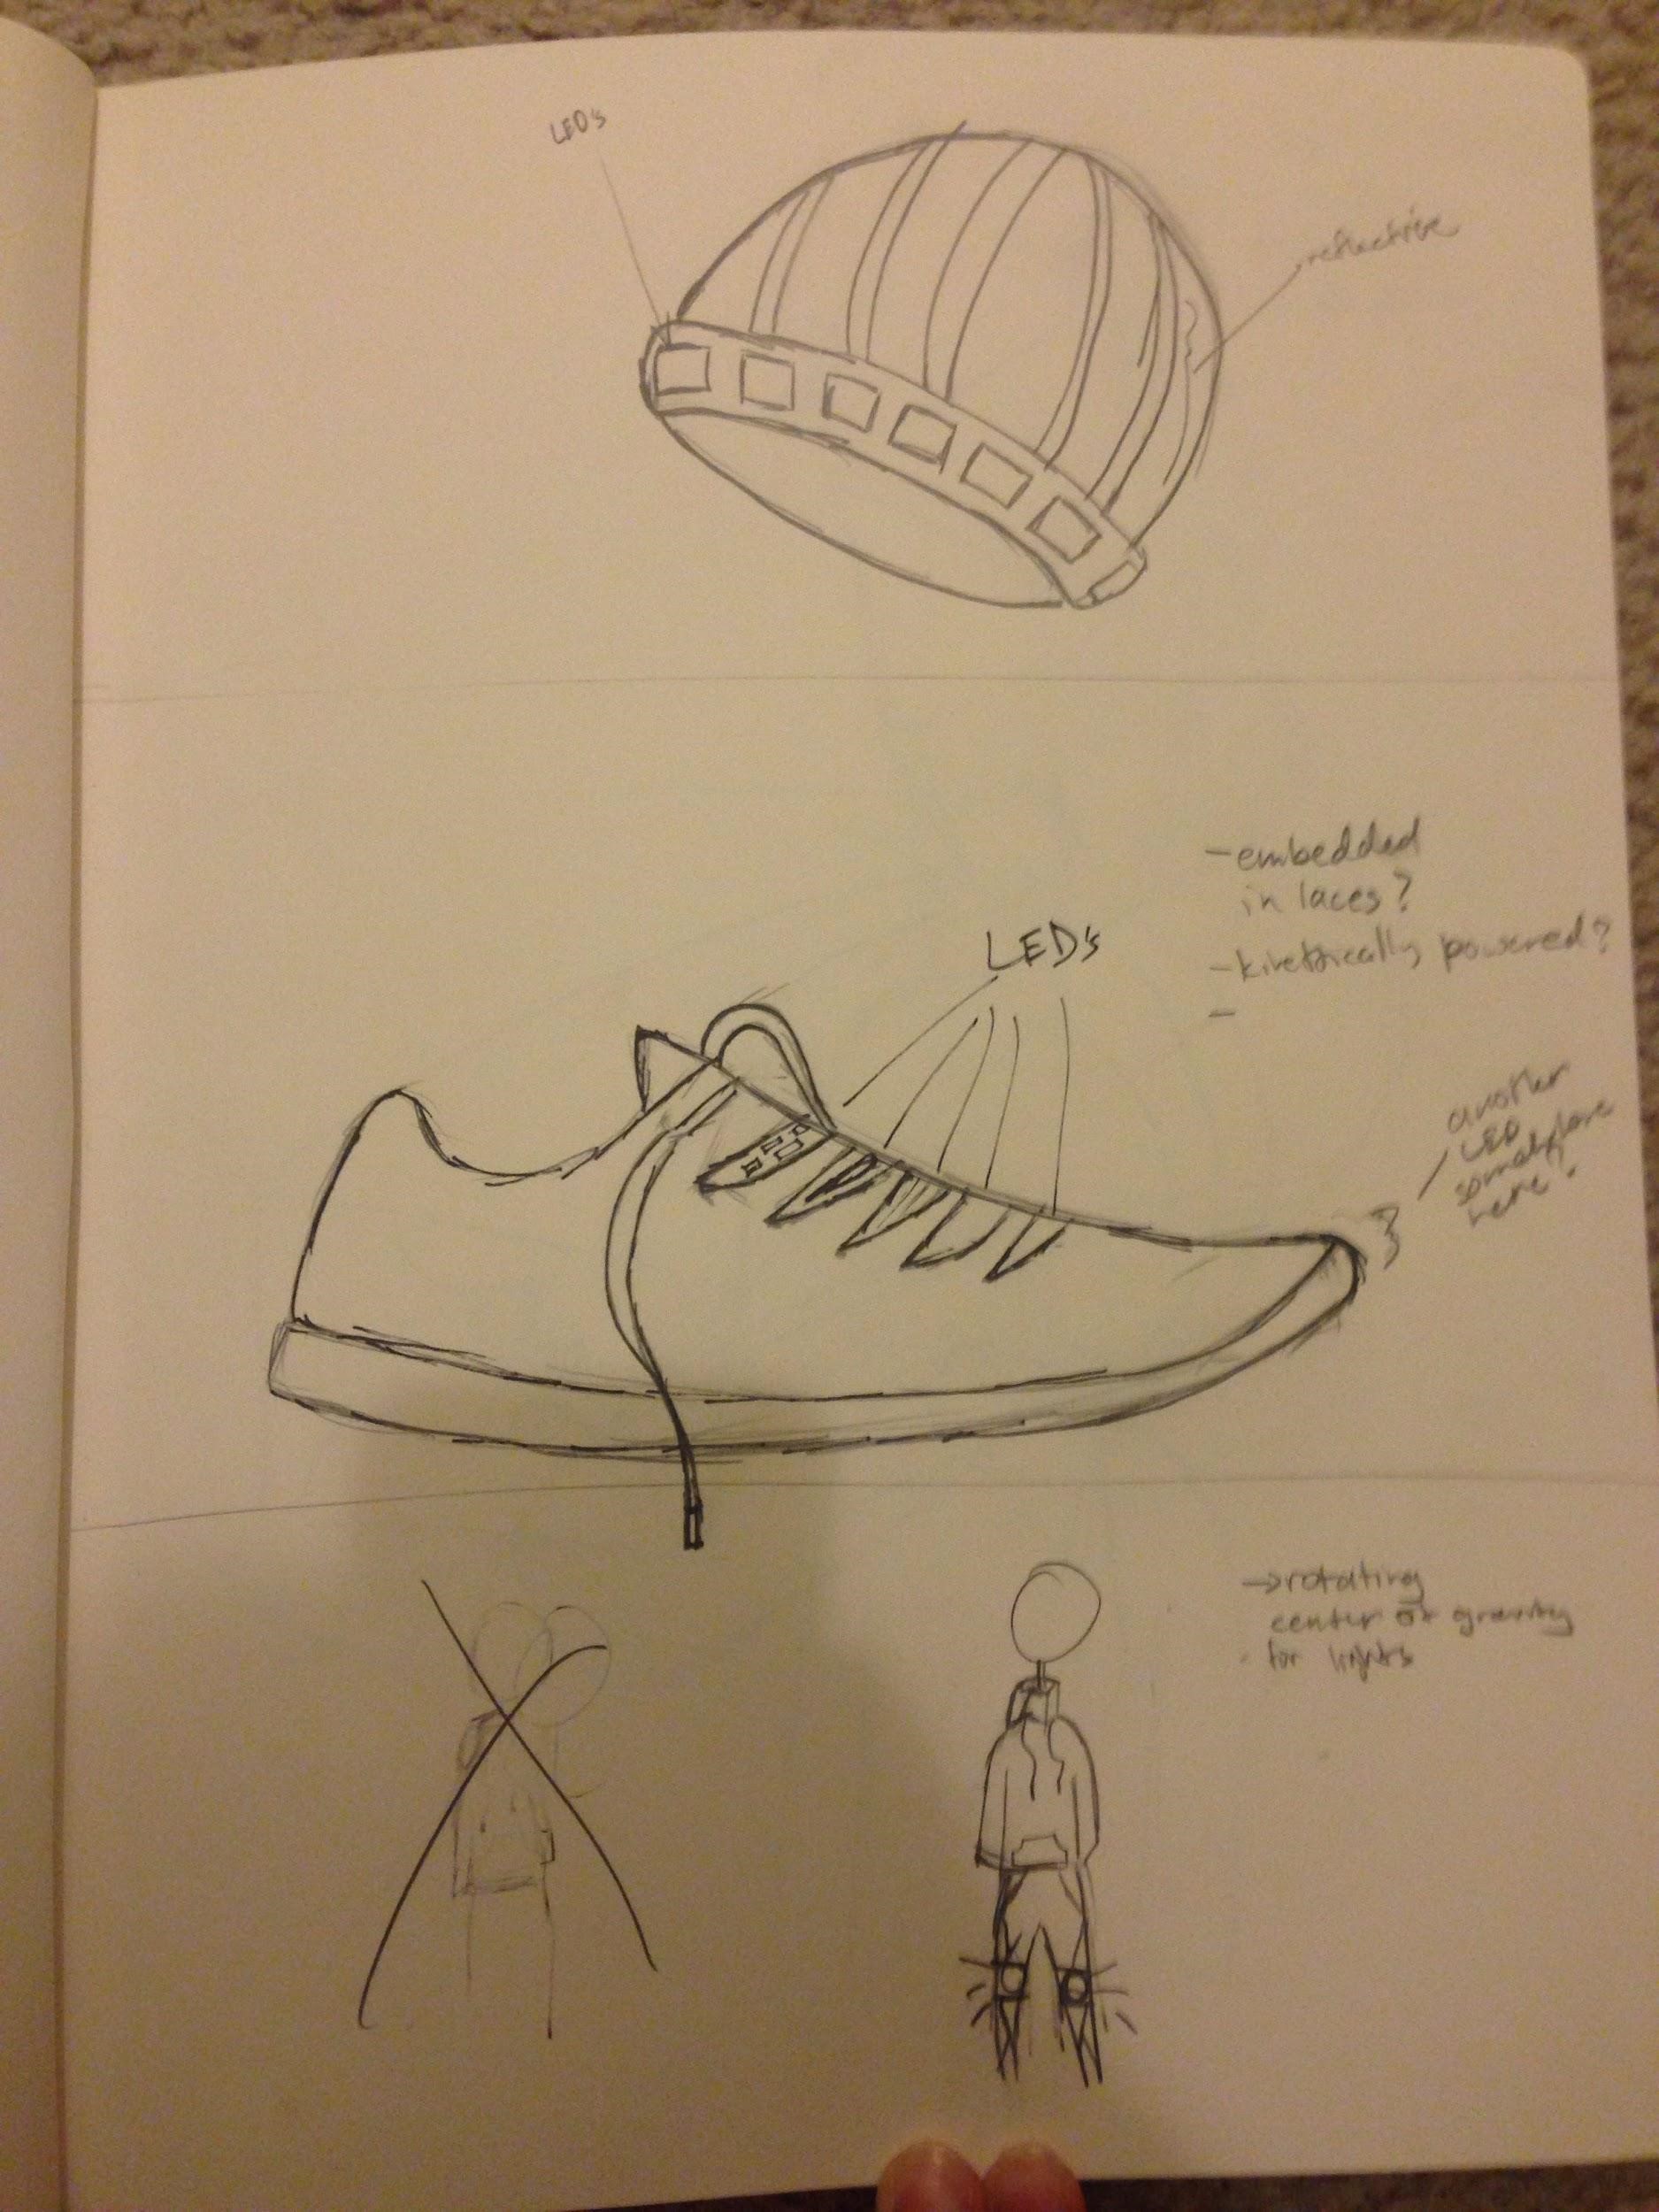 LED's
reflective
- embedded
in laces?
- kinetically powered?
-
LED's
another
LED
someplace
here?
→ rotating
center of gravity
for lights